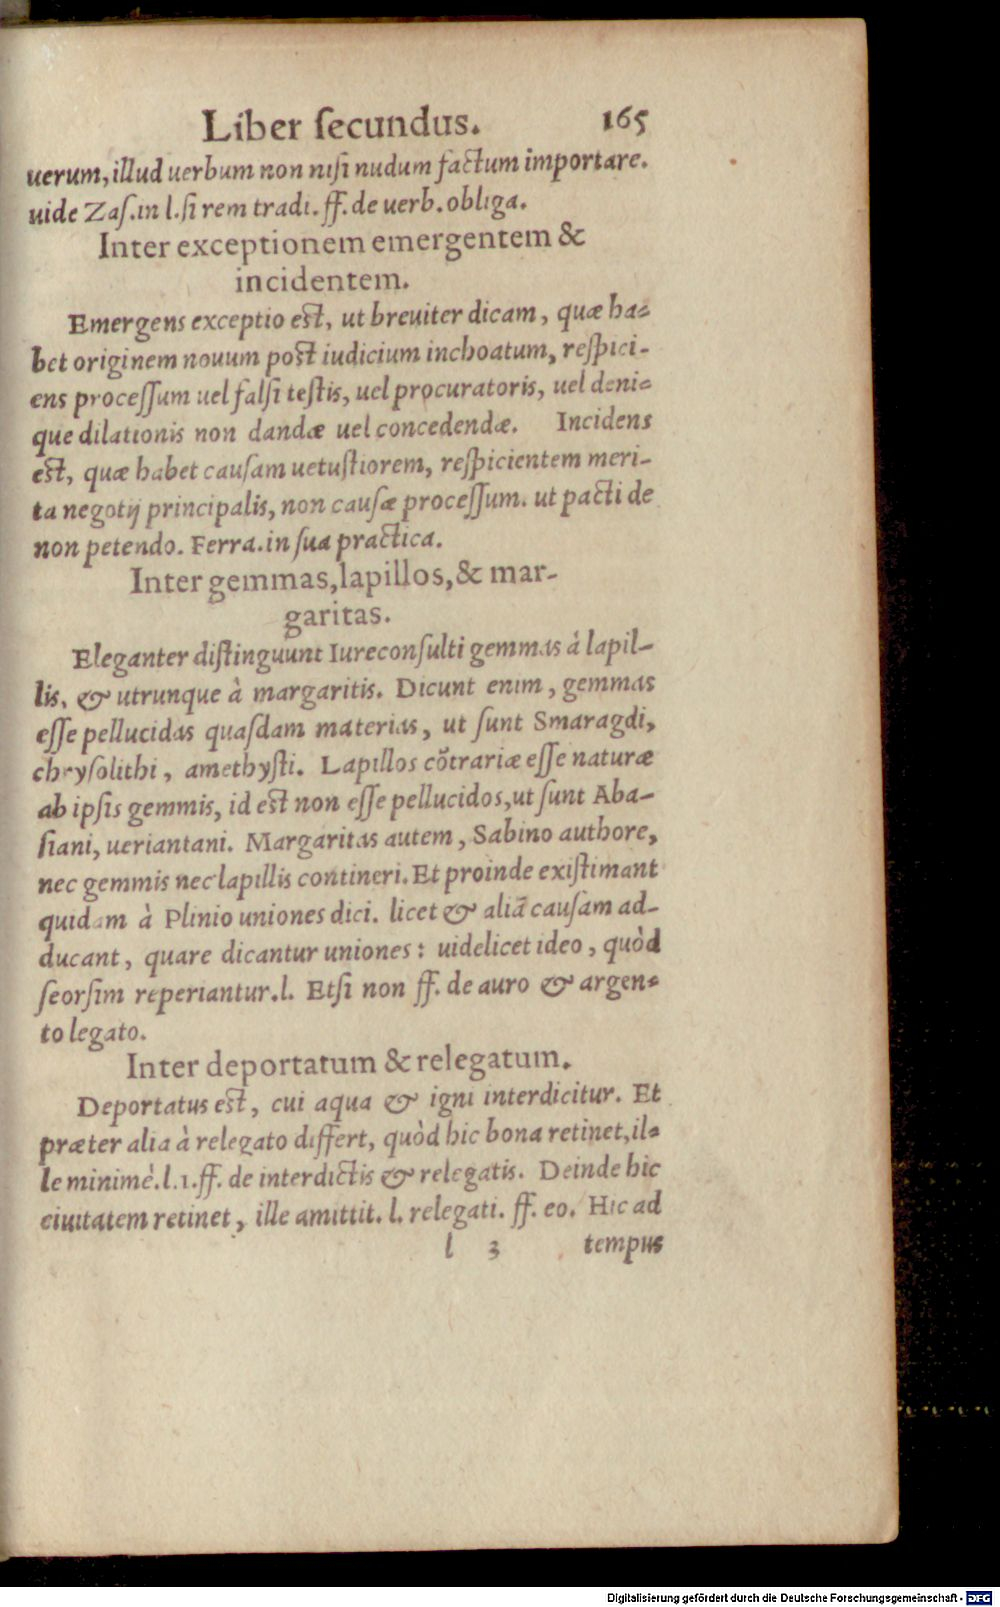 Liber ſecundus. 165
uerum, illud uerbum non niſi nudum factum importare.
uide Zaſ. in l. ſi rem tradi. ff. de uerb. obliga.
Inter exceptionem emergentem &
incidentem.
Emergens exceptio eſt, ut breuiter dicam, quæ ha-
bet originem nouum poſt iudicium inchoatum, reſpici-
ens proceſſum uel falſi teſtis, uel procuratoris, uel deni-
que dilationis non dandæ uel concedendæ. Incidens
eſt, quæ habet cauſam uetuſtiorem, reſpicientem meri-
ta negotij principalis, non cauſæ proceſſum. ut pacti de
non petendo. Ferra. in ſua practica.
Inter gemmas, lapillos, & mar-
garitas.
Eleganter diſtinguunt Iureconſulti gemmas à lapil-
lis, & utrunque à margaritis. Dicunt enim, gemmas
eſſe pellucidas quaſdam materias, ut ſunt Smaragdi,
chryſolithi, amethyſti. Lapillos cõtrariæ eſſe naturæ
ab ipſis gemmis, id eſt non eſſe pellucidos, ut ſunt Aba-
ſiani, ueriantani. Margaritas autem, Sabino authore,
nec gemmis nec lapillis contineri. Et proinde exiſtimant
quidam à Plinio uniones dici. licet & aliā cauſam ad-
ducant, quare dicantur uniones: uidelicet ideo, quòd
ſeorſim reperiantur. l. Etſi non ff. de auro & argen-
to legato.
Inter deportatum & relegatum.
Deportatus eſt, cui aqua & igni interdicitur. Et
præter alia à relegato differt, quòd hic bona retinet, il-
le minimè. l. 1. ff. de interdictis & relegatis. Deinde hic
ciuitatem retinet, ille amittit. l. relegati. ff. eo. Hic ad
l 3 tempus
Digitalisierung gefördert durch die Deutsche Forschungsgemeinschaft - DFG